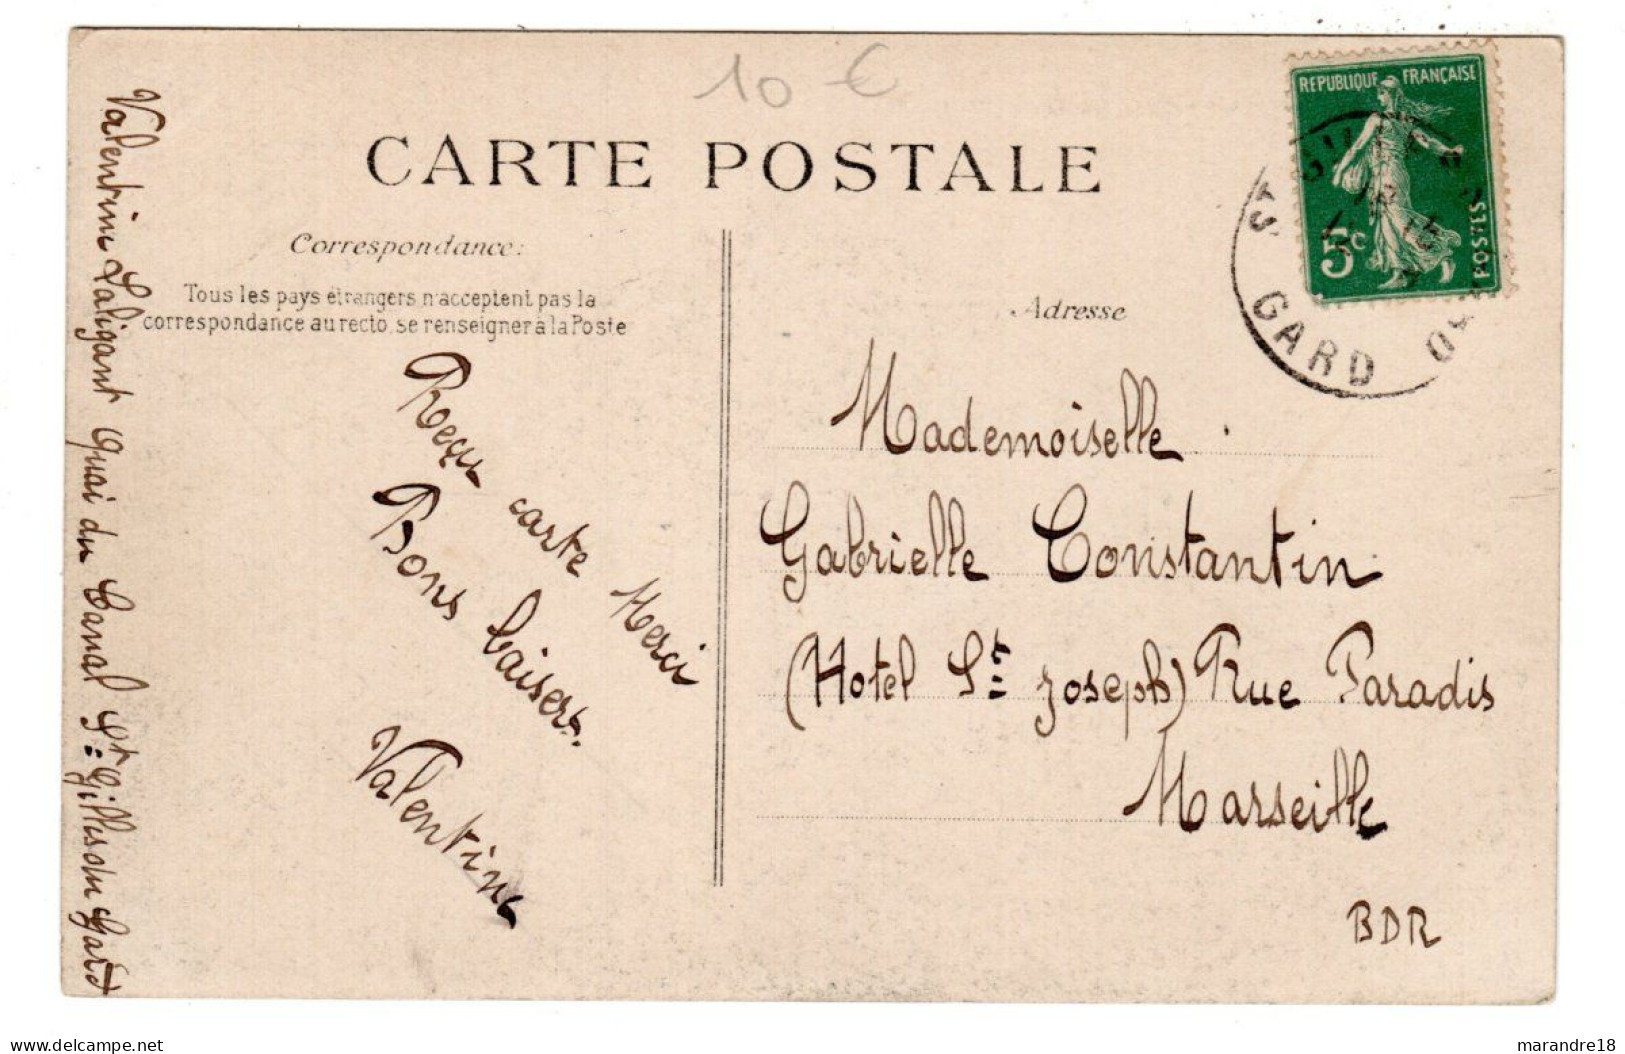 10 €
CARTE POSTALE
Correspondance:
Tous les pays étrangers n'acceptent pas la
correspondance au recto, se renseigner à la Poste
Adresse
REPUBLIQUE FRANÇAISE
5c
POSTES
GARD
Reçu carte Merci
Bons baisers.
Valentine
Valentine Laligant Quai du Canal St Gilles du Gard
Mademoiselle
Gabrielle Constantin
(Hotel St Joseph) Rue Paradis
Marseille
BDR
delcampe.net
marandre18